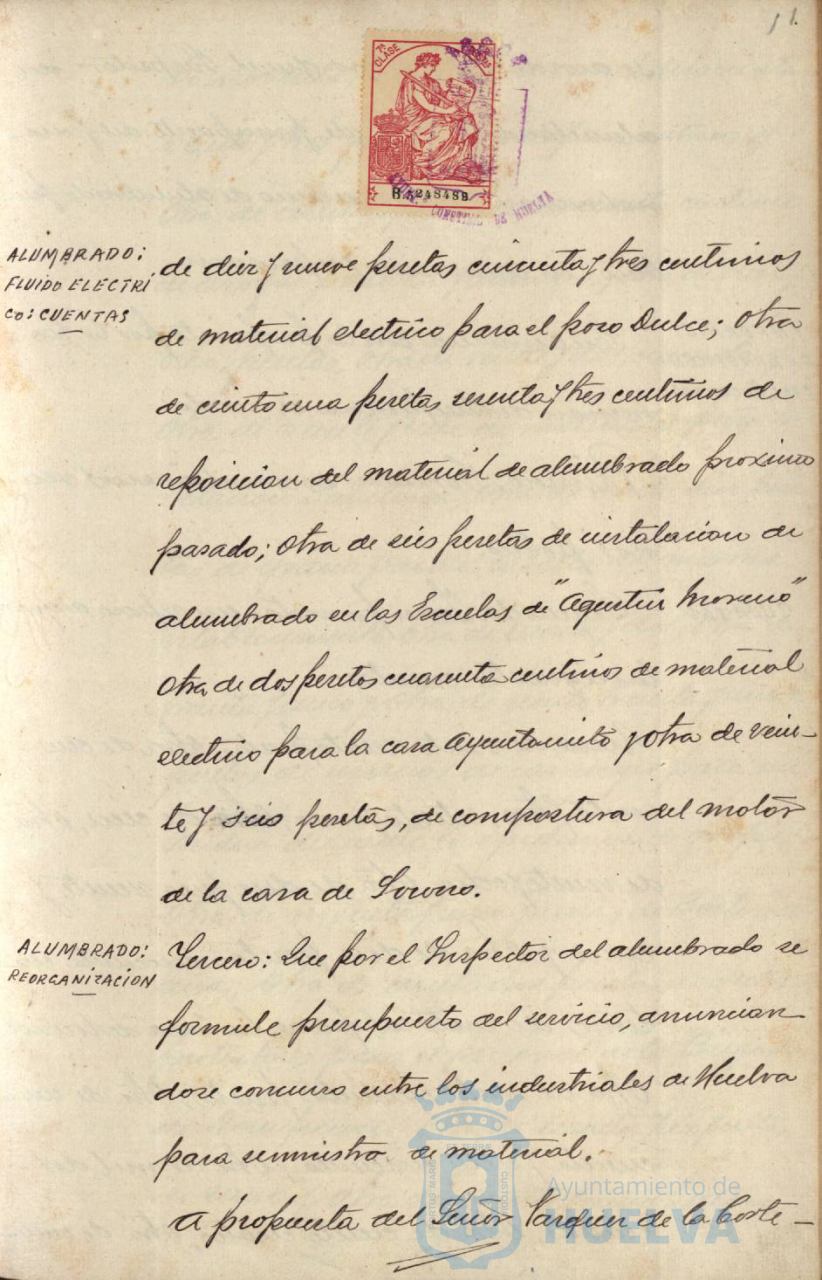 11.
7ª CLASE
B.1,248,488
CONSTNAL DE HUELVA
ALUMBRADO:
FLUIDO ELECTRI
CO: CUENTAS
de diez y nueve pesetas cincuenta y tres centimos
de material electrico para el pozo Dulce; otra
de ciento una pesetas setenta y tres centimos de
reposicion del material de alumbrado proximo
pasado; otra de seis pesetas de instalacion de
alumbrado en las Escuelas de "Agustin Moreno"
otra de dos pesetas cuarenta centimos de material
electrico para la casa Ayuntamito y otra de vein-
te y seis pesetas, de compostura del motor
de la casa de Socorro.
ALUMBRADO:
REORGANIZACION
Tercero: Que por el Inspector del alumbrado se
formule presupuesto del servicio, anuncian-
dose concurso entre los industriales de Huelva
para suministro de material.
A propuesta del Señor Vazquez de la Corte-
Ayuntamiento de
HUELVA